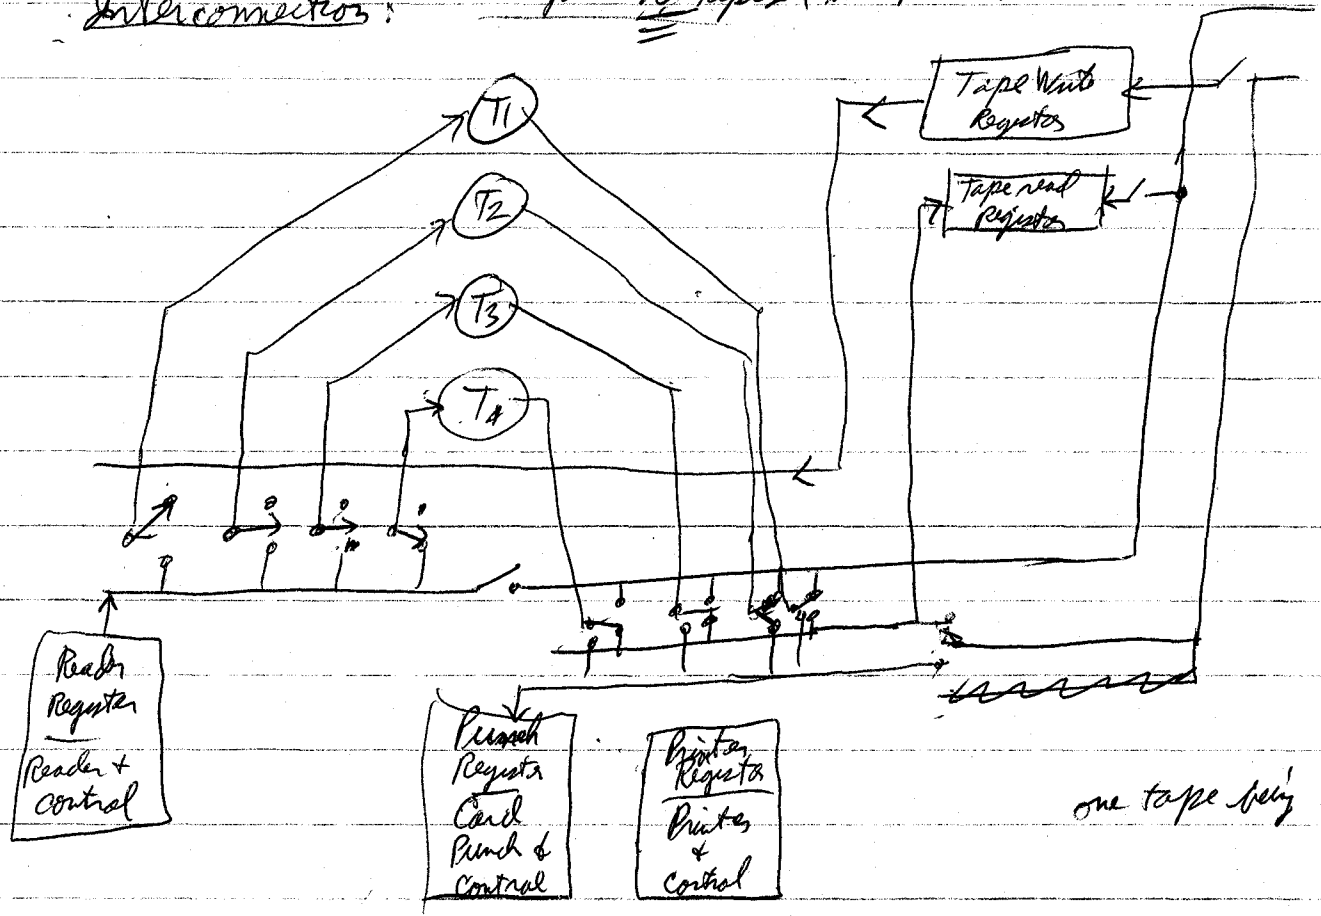 Interconnection:
tapes (
T1
T2
T3
T4
Tape Write
Register
Tape read
Register
Reader
Register
Reader &
control
Punch
Register
Card
Punch &
Control
Printer
Register
Printer
&
Control
one tape being